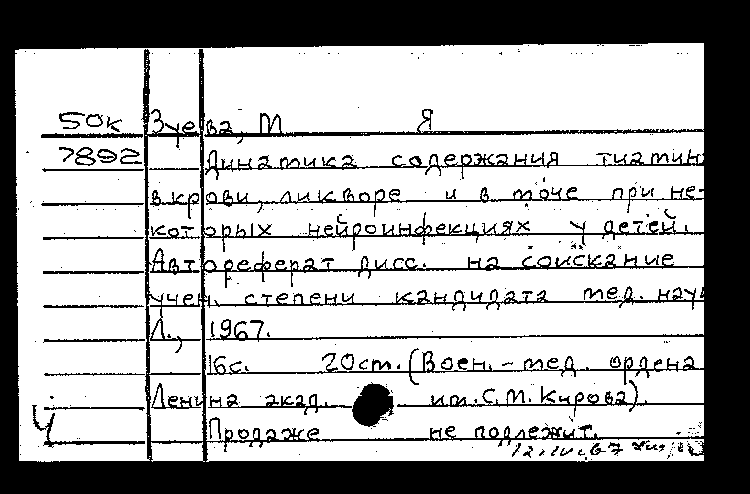 50к Зуева, М Я
7892 Динамика содержания тиамина
в крови, ликворе и в моче при не-
которых нейроинфекциях у детей.
Автореферат дисс. на соискание
учен. степени кандидата мед. наук
Л., 1967.
16с. 20см. (Воен.-мед. ордена
Ленина акад. им. С.М. Кирова).
Ч Продаже не подлежит.